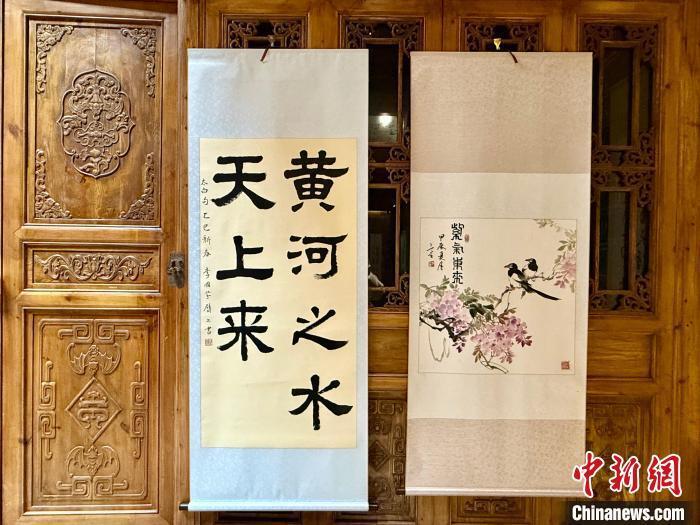 黄河之水
天上来
太白句 乙巳新春
紫气东来
甲辰
中新网
Chinanews.com